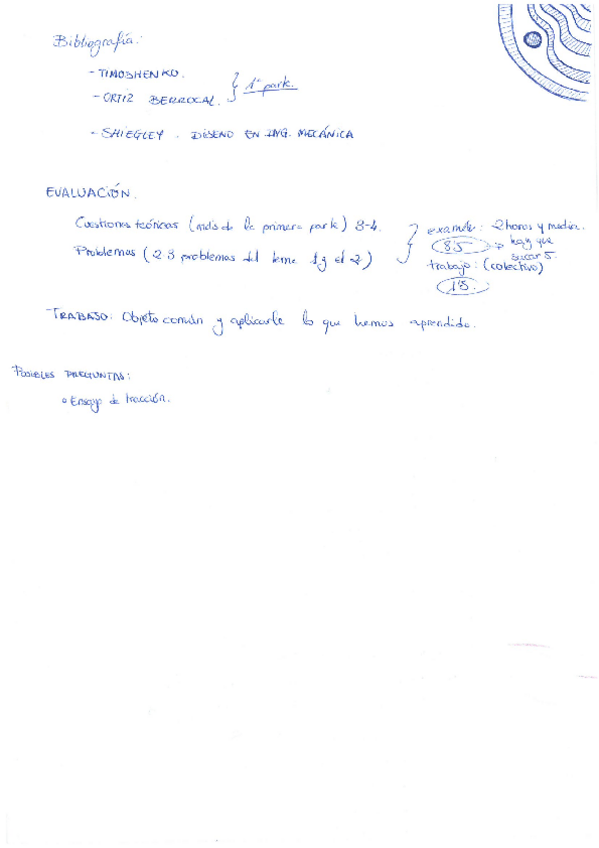 Bibliografía:
- TIMOSHENKO.
- ORTIZ BERROCAL. } 1ª parte.
- SHIEGLEY. DISEÑO EN ING. MECÁNICA
EVALUACIÓN.
Cuestiones teóricas (más de la primera parte) 3-4.
Problemas (2 3 problemas del tema 1 y el 2)
examen: 2 horas y media.
8'5 → hay que sacar 5.
trabajo: (colectivo)
1'5.
TRABAJO: Objeto común y aplicarle lo que hemos aprendido.
POSIBLES PREGUNTAS:
o Ensayo de tracción.